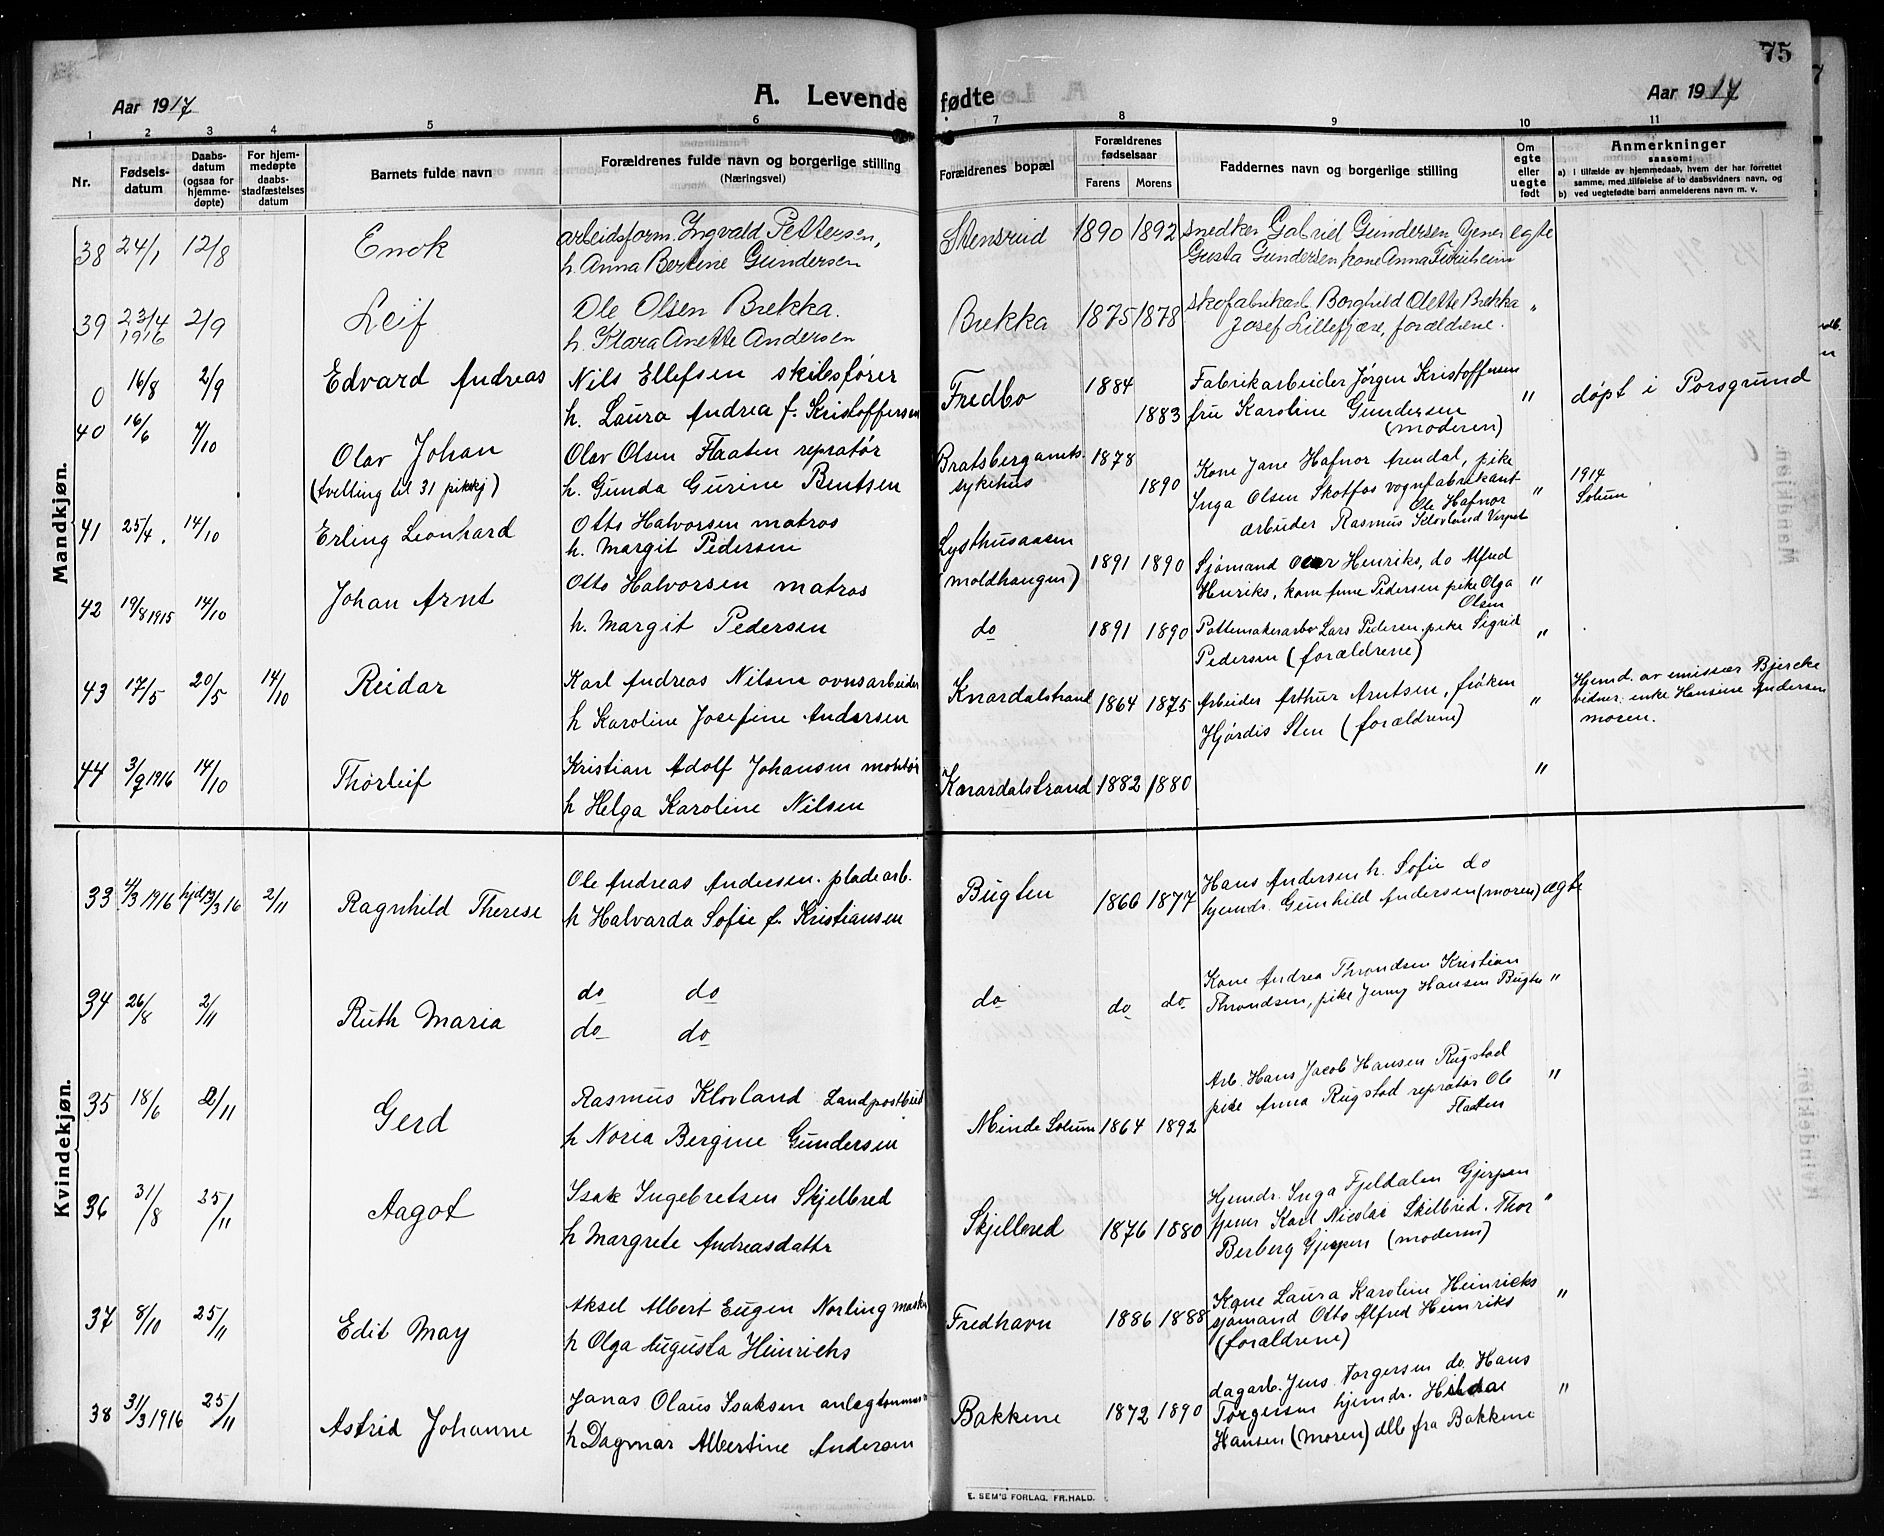 75
Aar 1917
A. Levende fødte
Aar 1917
1 2 3 4 5 6 7 8 9 10 11
Nr.
Fødsels-
datum
Daabs-
datum
(ogsaa for
hjemme-
døpte)
For hjem-
medøpte
daabs-
stadfæstelses
datum
Barnets fulde navn
Forældrenes fulde navn og borgerlige stilling
(Næringsvei)
Forældrenes bopæl
Forældrenes
fødselsaar
Farens Morens
Faddernes navn og borgerlige stilling
Om
egte
eller
uegte
født
Anmerkninger
saasom:
a) i tilfælde av hjemmedaab, hvem der har forrettet
samme, med tilføielse af to daabsvidners navn, og
b) ved uegtefødte barn anmelderens navn m. v.
Mandkjøn.
38 24/1 12/8 Enok
arbeidsform. Ingvald Pettersen,
h. Anna Bertine Gundersen
Stensrud 1890 1892
snedker Gabriel Gundersen, tjener
Gusta Gundersen, kone Anna
egte
39 23/4 1916 2/9 Leif
Ole Olsen Brekka.
h. Klara Anette Andersen
Brekka 1875 1878
skofabrikarb. Borghild Olette Brekka
Josef Lillefjære, forældrene.
"
0 16/8 2/9 Edvard Andreas
Nils Ellefsen skibsfører
h. Laura Andrea f. Kristoffersen
Fredbo 1884 1883
Fabrikarbeider Jørgen Kristoffersen
fru Karoline Gundersen
(moderen)
" døpt i Porsgrund
40 16/6 7/10 Olav Johan
(tvelling til 31 pikekj)
Olav Olsen Flaaten repratør
h. Gunda Gurine Bentsen
Bratsbergamts-
sykehus 1878 1890
Kone Jane Hafnor Arendal, pike
Inga Olsen Skotfos vognfabrikant
Ole Hafnor
arbeider Rasmus Klovland
" 1914
Solum
41 25/4. 14/10 Erling Leonhard
Otto Halvorsen matros
h. Margit Pedersen
Lysthusaasen
(moldhaugen) 1891 1890
Sjømand Henriks, do Alfred
Henriks, kone Anne Pedersen pike Olga
Olsen
"
42 19/8 1915 14/10 Johan Arnt
Otto Halvorsen matros
h. Margit Pedersen
do 1891 1890
Pottemakerarb Lars Pedersen, pike Sigrid
Pedersen (forældrene)
"
43 17/5 20/5 14/10 Reidar
Karl Andreas Nilsen ovnsarbeider
h Karoline Josefine Andersen
Knardalstrand 1864 1875
Arbeider Arthur Arntsen, frøken
Hjørdis Sten (forældrene)
" Hjemd. av emissær Bjercke
vidner: enke Hansine Andersen
moren.
44 3/9 1916 14/10 Thorleif
Kristian Adolf Johansen montør
h Helga Karoline Nilsen
Knardalstrand 1882 1880
"
Kvindekjøn.
33 4/3 1916 hjd 13/3 16 2/11 Ragnhild Therese
Ole Andreas Andersen. pladearb.
h Halvarda Sofie f. Kristiansen
Bugten 1866 1877
Hans Andersen h. Sofie do
hjemdr. Gunhild Andersen (moren)
ægte
34 26/8 2/11 Ruth Maria
do do
do do
do do do
Kone Andrea Throndsen Kristian
Throndsen, pike Jenny Hansen Bugten
"
35 18/6 2/11 Gerd
Rasmus Klovland Landpostbud
h Noria Bergine Gundersen
Minde Solum 1864 1892
Arb. Hans Jacob Hansen Rugstad
pike Anna Rugstad repratør Ole
Flaaten
"
36 31/8 25/11 Aagot
Isak Ingebretsen Skjelbred
h Margrete Andreasdattr
Skjelbred 1876 1880
Hjemdr. Inga Fjeldalen Gjerpen
tjener Karl Nicolai Skilbred. Thor
Berberg Gjerpen (moderen)
"
37 8/10 25/11 Edit May
Aksel Albert Eugen Norling
h Olga Augusta Heinrichs
Fredhavn 1886 1888
Kone Laura Karoline Heinrichs
sjømand Otto Alfred Heinriks
(forældrene)
"
38 31/3 1916 25/11 Astrid Johanne
Jonas Olaus Isaksen
h Dagmar Albertine Andersen
Bakkene 1872 1890
dagarb. Jens Torgersen do. Hans
Torgersen hjemdr. Hilda
Hansen (moren) alle fra Bakkene
"
E. SEM'S FORLAG. FR.HALD.